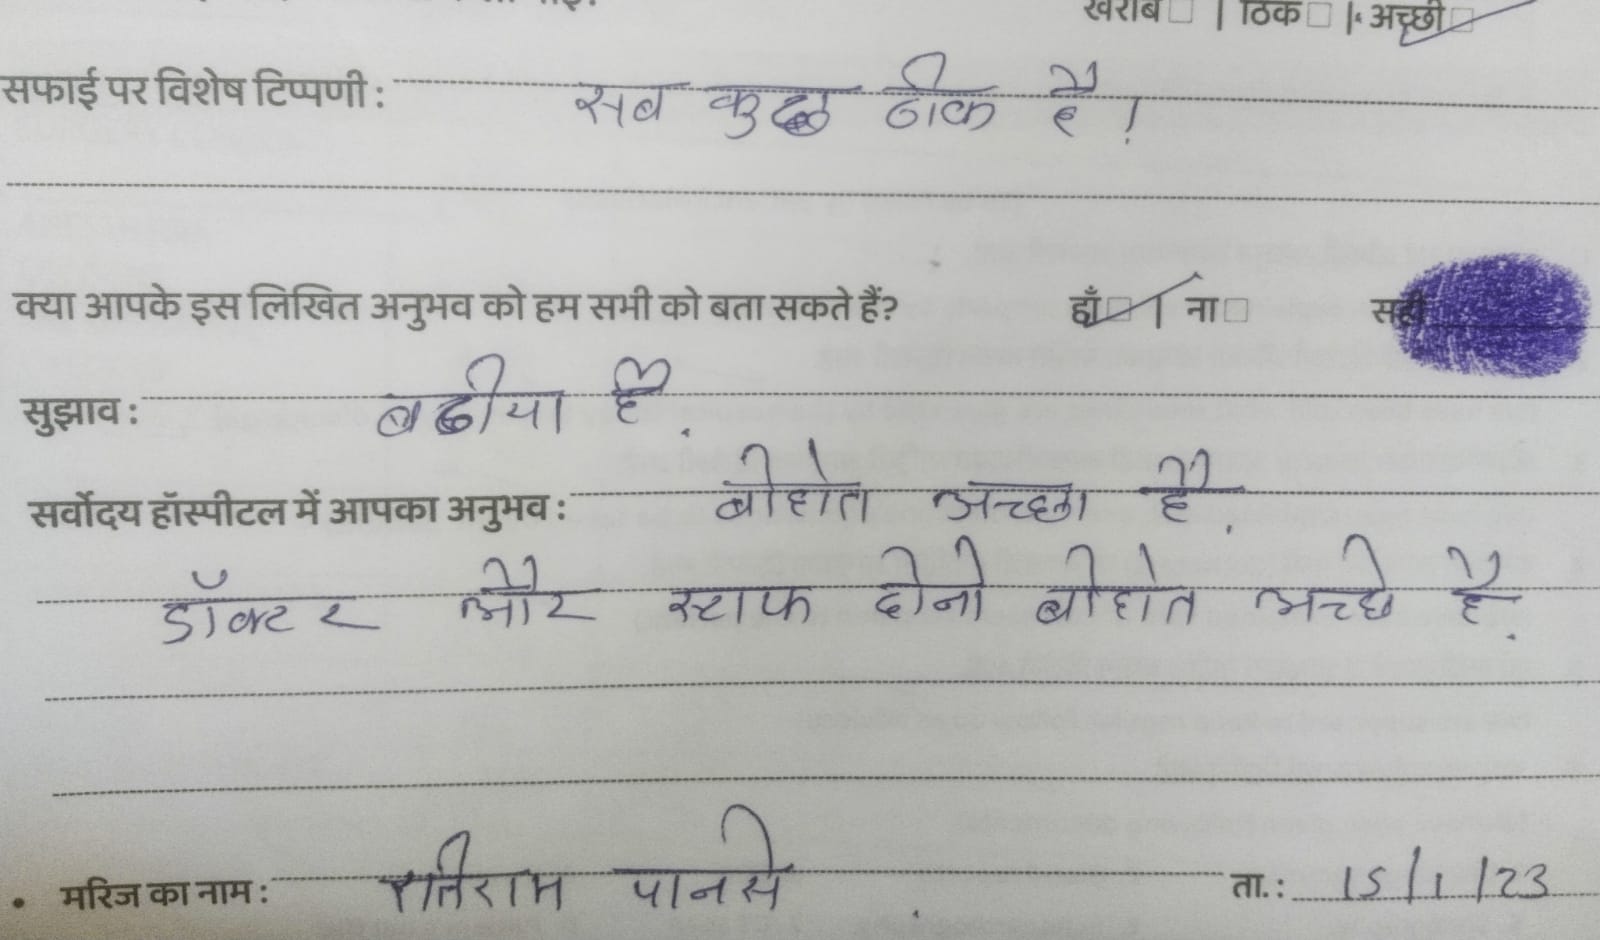 खराब □ | ठिक □ | अच्छी □
सफाई पर विशेष टिप्पणी : सब कुछ ठीक है !
क्या आपके इस लिखित अनुभव को हम सभी को बता सकते हैं? हाँ □ | ना □ सही
सुझाव : बढीया है.
सर्वोदय हॉस्पीटल में आपका अनुभव : बोहोत अच्छा है.
डॉक्टर और स्टाफ दोनो बोहोत अच्छे है.
• मरिज का नाम : रतिराम पानसे ता.: 15/1/23